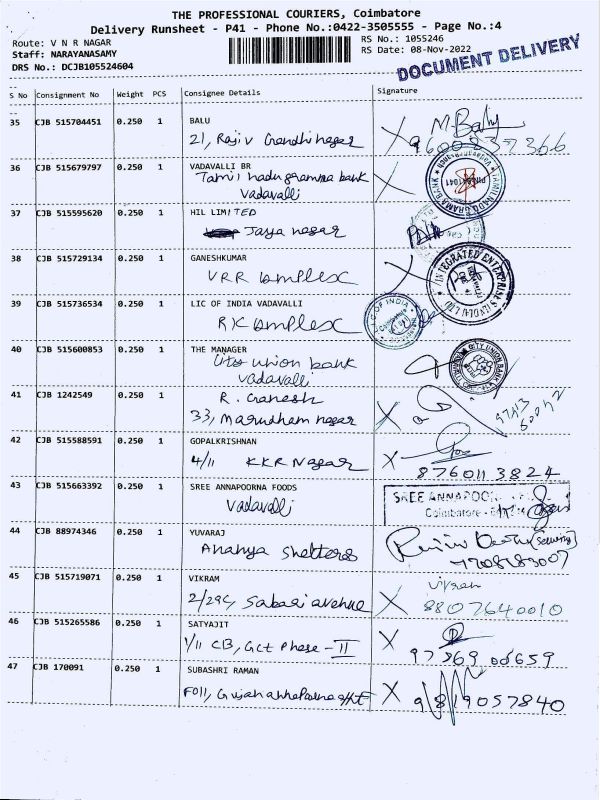 THE PROFESSIONAL COURIERS, Coimbatore
Delivery Runsheet - P41 - Phone No.:0422-3505555 - Page No.:4
Route: V N R NAGAR
RS No.: 1055246
Staff: NARAYANASAMY
RS Date: 08-Nov-2022
DRS No.: DCJB105524604
DOCUMENT DELIVERY
S No Consignment No Weight PCS Consignee Details Signature
35 CJB 515704451 0.250 1 BALU
21, Rajiv Gandhi nagar
M. Balu
36 CJB 515679797 0.250 1 VADAVALLI BR
Tamil nadu grama bank
Vadavalli
TAMIL NADU GRAMA BANK
37 CJB 515595620 0.250 1 HIL LIMITED
Jaya nagar
38 CJB 515729134 0.250 1 GANESHKUMAR
VRR Complex
INTEGRATED ENTERPRISES
39 CJB 515736534 0.250 1 LIC OF INDIA VADAVALLI
RK Complex
L.I.C OF INDIA
40 CJB 515600853 1 THE MANAGER
union bank
Vadavalli
CITY UNION BANK
41 CJB 1242549 0.250 1 R. Ganesh
33, Marudham nagar
42 CJB 515588591 0.250 1 GOPALKRISHNAN
4/11 KKR Nagar
8760113824
43 CJB 515663392 0.250 1 SREE ANNAPOORNA FOODS
Vadavalli
SREE ANNAPOO
Coimbatore -
44 CJB 88974346 0.250 1 YUVARAJ
Ananya Shelters
45 CJB 515719071 0.250 1 VIKRAM
Sabari avenue
Vikram
8807640010
46 CJB 515265586 0.250 1 SATYAJIT
1/11 CB, Gct Phase - II
47 CJB 170091 0.250 1 SUBASHRI RAMAN
F011,